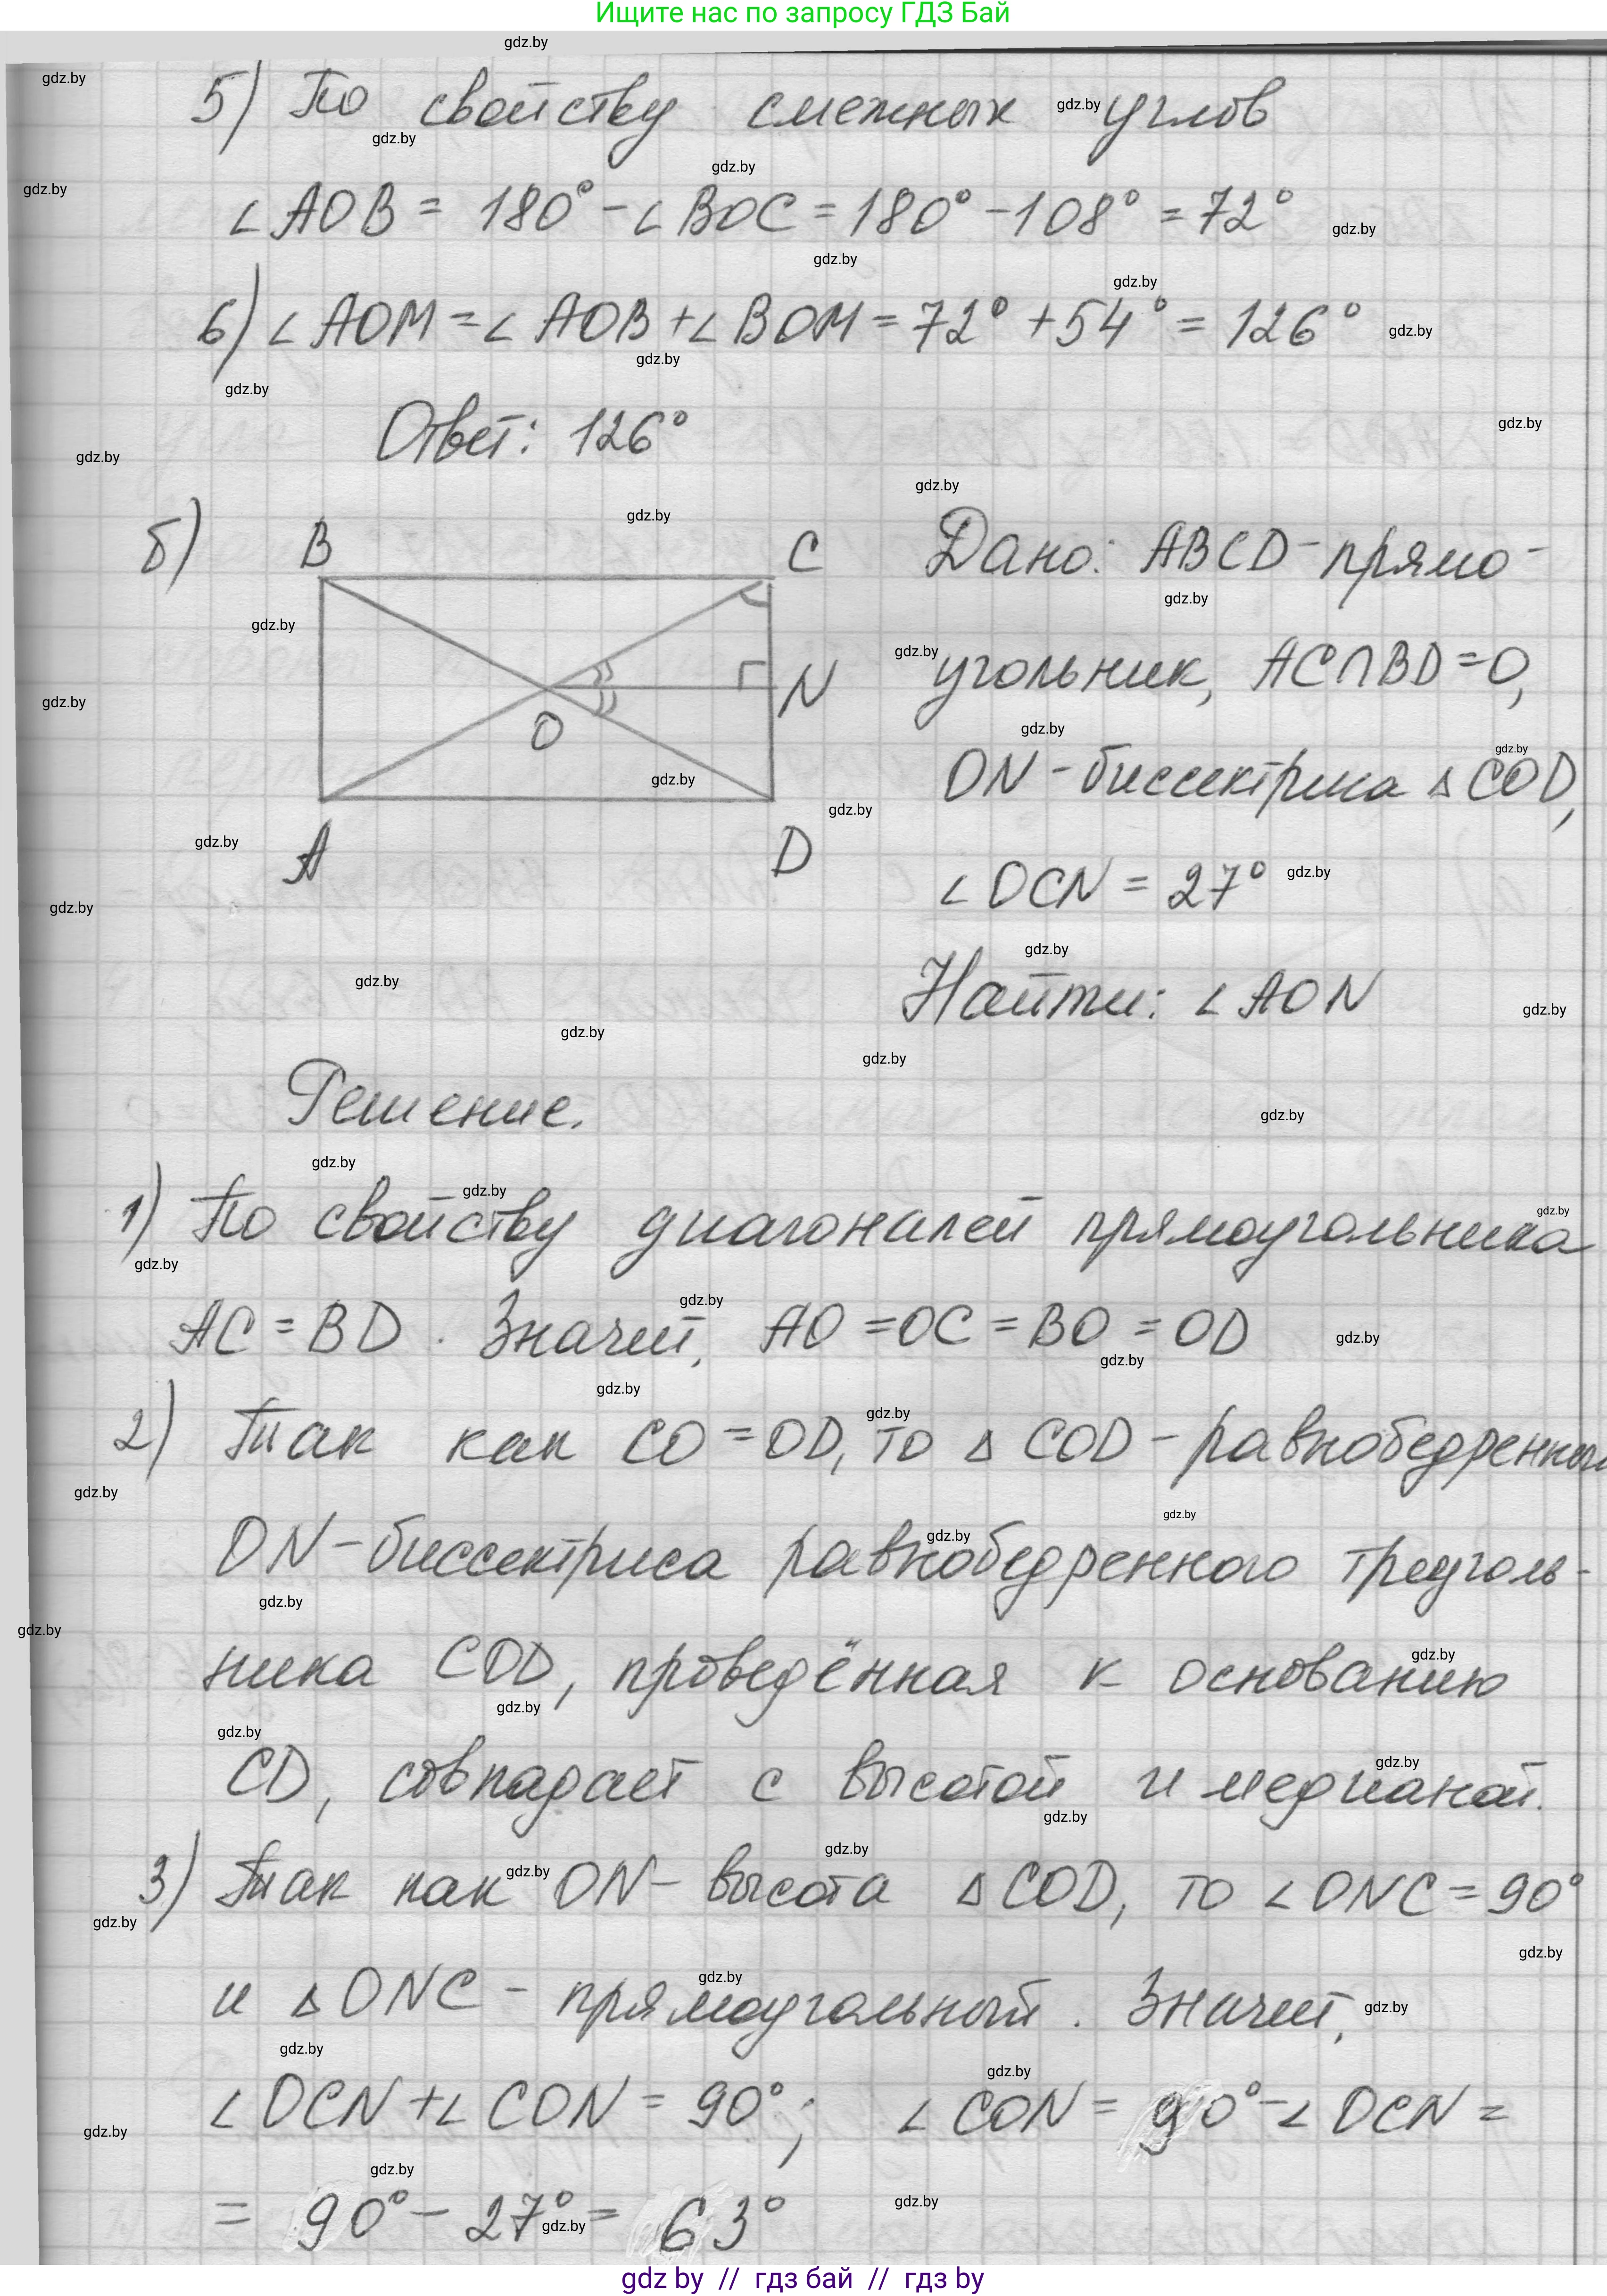 Ищите нас по запросу ГДЗ Бай
5) По свойству смежных углов
∠AOB = 180° - ∠BOC = 180° - 108° = 72°
6) ∠AOM = ∠AOB + ∠BOM = 72° + 54° = 126°
Ответ: 126°
б)
B
C
N
O
A
D
Дано: ABCD - прямо-
угольник, AC∩BD = O,
ON - биссектриса △COD,
∠OCN = 27°
Найти: ∠AON
Решение.
1) По свойству диагоналей прямоугольника
AC = BD. Значит, AO = OC = BO = OD
2) Так как CO = OD, то △COD - равнобедренный
ON - биссектриса равнобедренного треуголь-
ника COD, проведённая к основанию
CD, совпадает с высотой и медианой.
3) Так как ON - высота △COD, то ∠ONC = 90°
и △ONC - прямоугольный. Значит,
∠OCN + ∠CON = 90°; ∠CON = 90° - ∠OCN =
= 90° - 27° = 63°
gdz by // гдз бай // гдз by